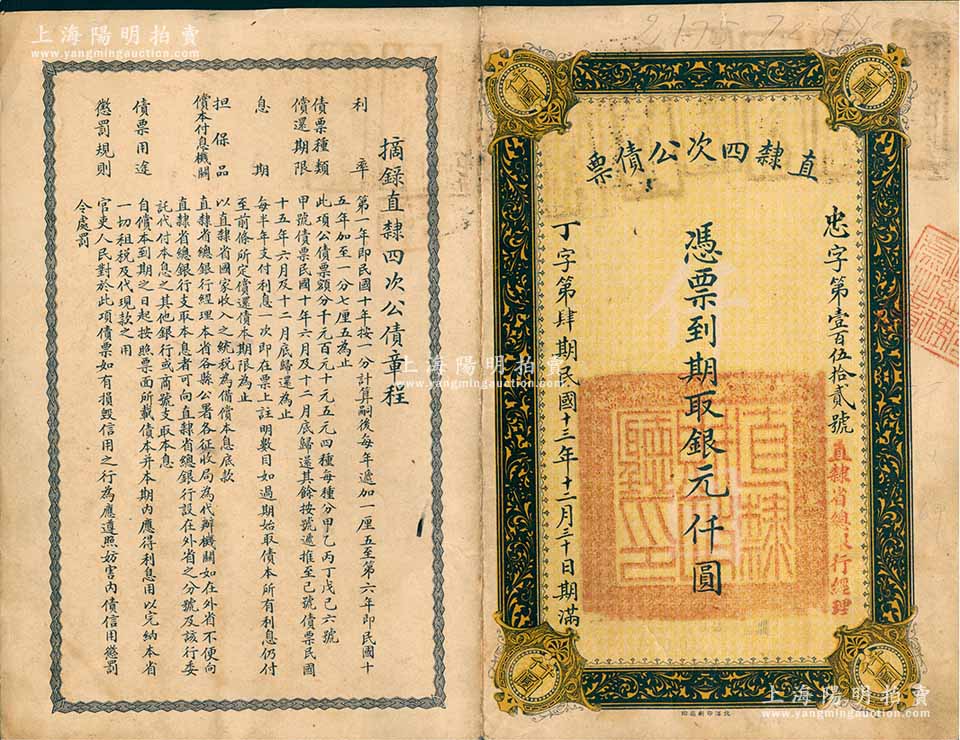 上海陽明拍賣
www.yangmingauction.com
直隸四次公債票
忠字第壹百伍拾貳號
直隸省總銀行經理
憑票到期取銀元仟圓
丁字第肆期民國十三年十二月三十日期滿
上海陽明拍賣
www.yangmingauction.com
摘錄直隸四次公債章程
利率 第一年即民國十年按一分計算嗣後每年遞加一厘五至第六年即民國十
五年加至一分七厘五為止
債票種類 此項公債票額分千元百元十元五元四種每種分甲乙丙丁戊己六號
償還期限 甲號債票民國十年六月及十二月底歸還其餘按號遞推至己號債票民國
十五年六月及十二月底歸還為止
息期 每半年支付利息一次即在票上註明數目如過期始取債本所有利息仍付
至前條所定償還債本期限為止
担保品 以直隸省國家收入之統税為備償本息底款
償本付息機關 直隸省總銀行經理本省各縣公署各征收局為代辦機關如在外省不便向
直隸省總銀行支取本息者可向直隸省總銀行設在外省之分號及該行委
託代付本息之其他銀行或商號支取本息
債票用途 自償本到期之日起按照票面所載債本并本期內應得利息用以完納本省
一切租税及代現款之用
懲罰規則 官吏人民對於此項債票如有損毀信用之行為應遵照妨害內債信用懲罰
令處罰
上海陽明拍賣
www.yangmingauction.com
上海陽明拍賣
www.yangmingauction.com